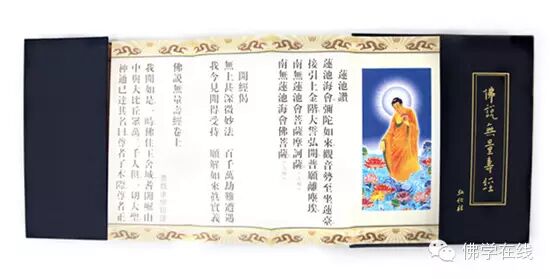 佛說無量壽經
弘化社
蓮池讚
蓮池海會彌陀如來觀音勢至坐蓮臺
接引上金階大誓弘開普願離塵埃
南無蓮池海會菩薩摩訶薩
南無蓮池海會佛菩薩
開經偈
無上甚深微妙法　百千萬劫難遭遇
我今見聞得受持　願解如來真實義
佛說無量壽經卷上
我聞如是一時佛住王舍城耆闍崛山
中與大比丘眾萬二千人俱一切大聖
神通已達其名曰尊者了本際尊者正
佛学在线